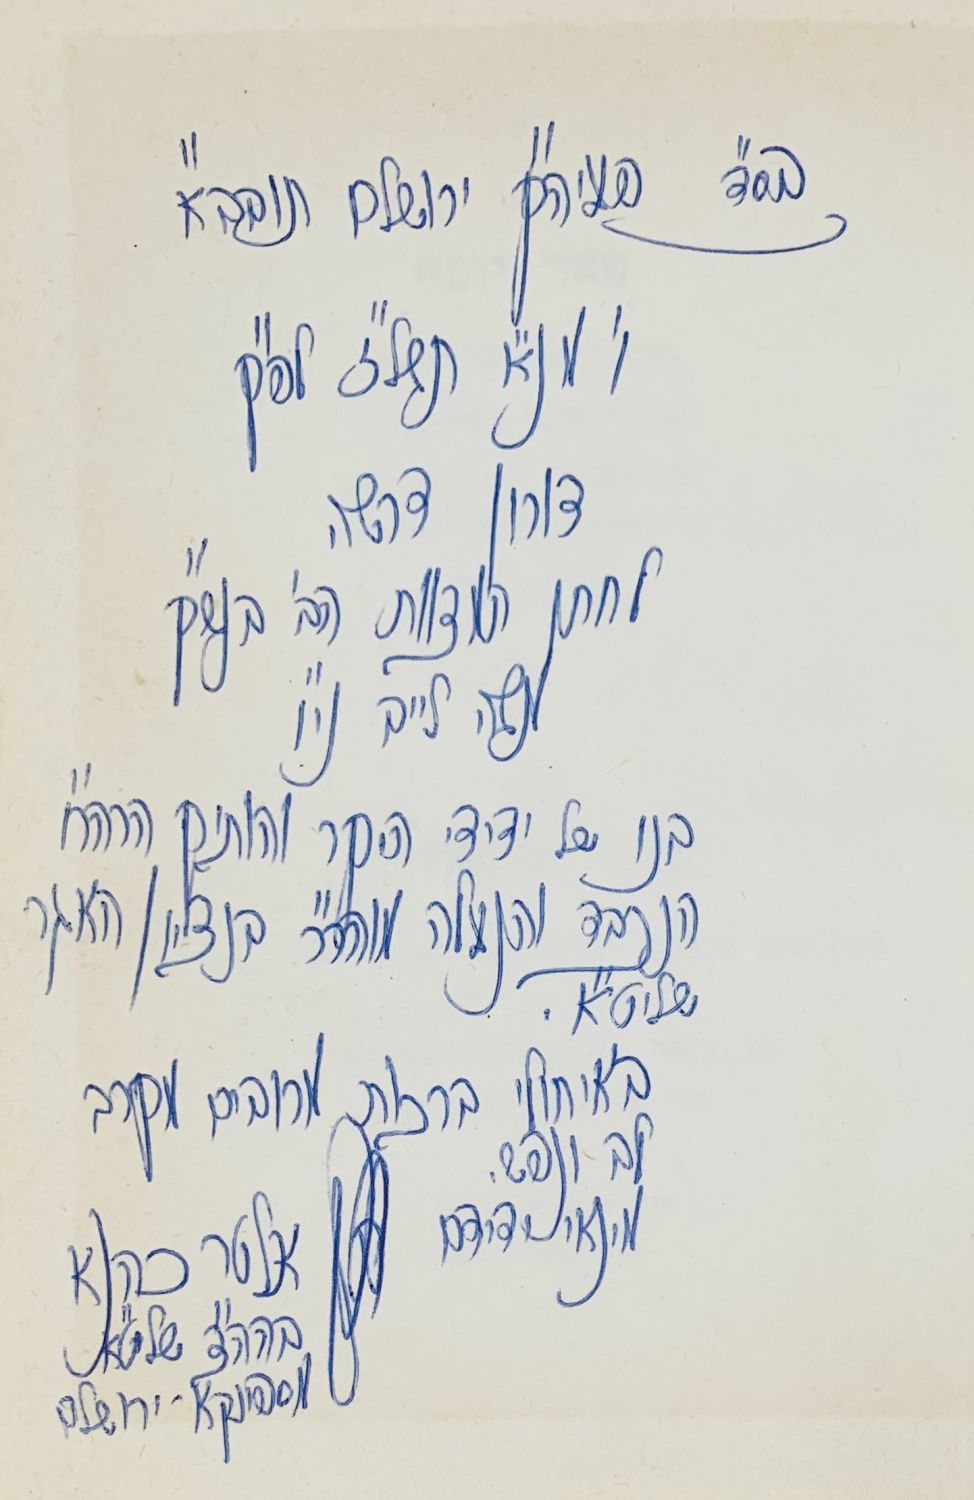 בס"ד פעיה"ק ירושלם תובב"א
ו' מנ"א תשל"ז לפ"ק
דורון דרשה
לחתן המצוות הב' בנש"ק
משה לייב ני"ו
בנו של ידידי היקר והותיק הרה"ח
הנכבד והנעלה מוהר"ר בנציון האגר
שליט"א.
באיחולי ברכות מרובים מקרב
לב ונפש.
מינאי ידידם
אלטר כהנא
בהה"צ שליט"א
מספינקא - ירושלם